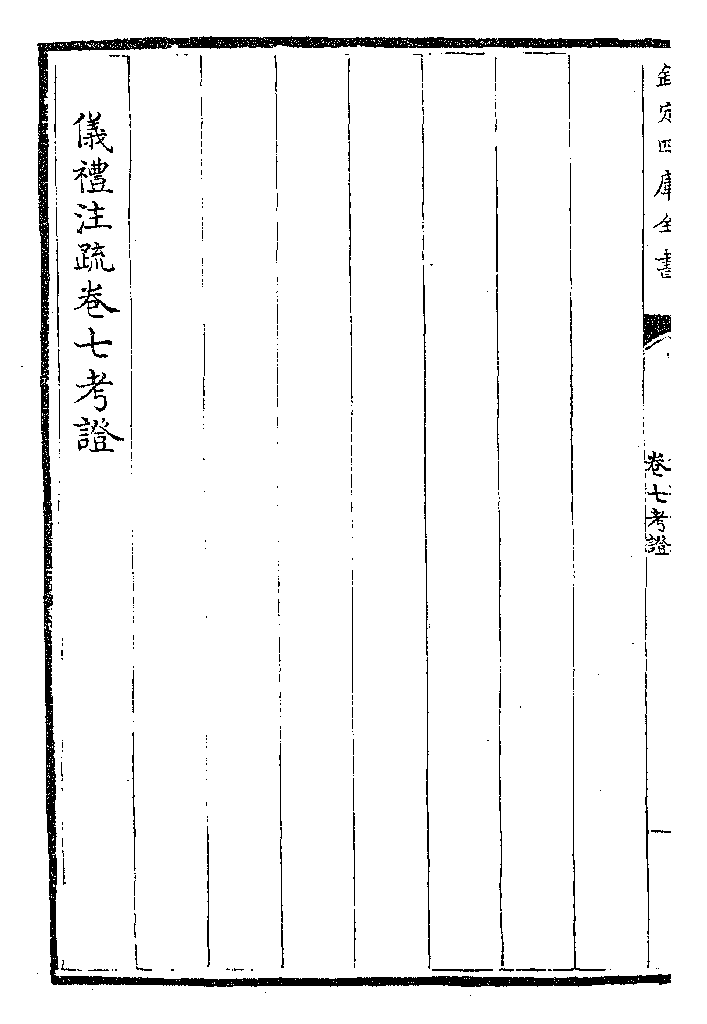 欽定四庫全書
卷七考證
儀禮注疏卷七考證